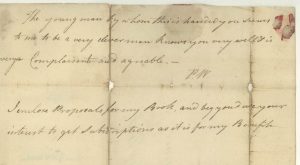 The young man by whom this is handed you seems
to me to be a very clever man knows you very well & is
very Complaisant and agreable. —
P.W
I enclose Proposals for my Book and beg you'd use your
interest to get Subscriptions as it is for my Benefit